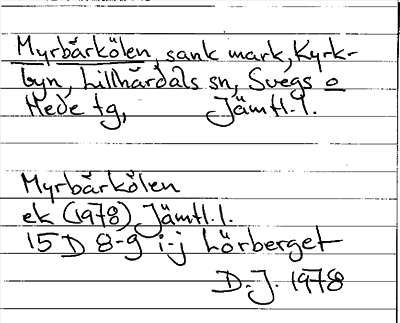 Myrbärkölen, sank mark, Kyrk-
byn, Lillhärdals sn, Svegs o
Hede tg, Jämtl. l.
Myrbärkölen
ek (1978) Jämtl. l.
15D 8-9 i-j Lörberget
D.J. 1978